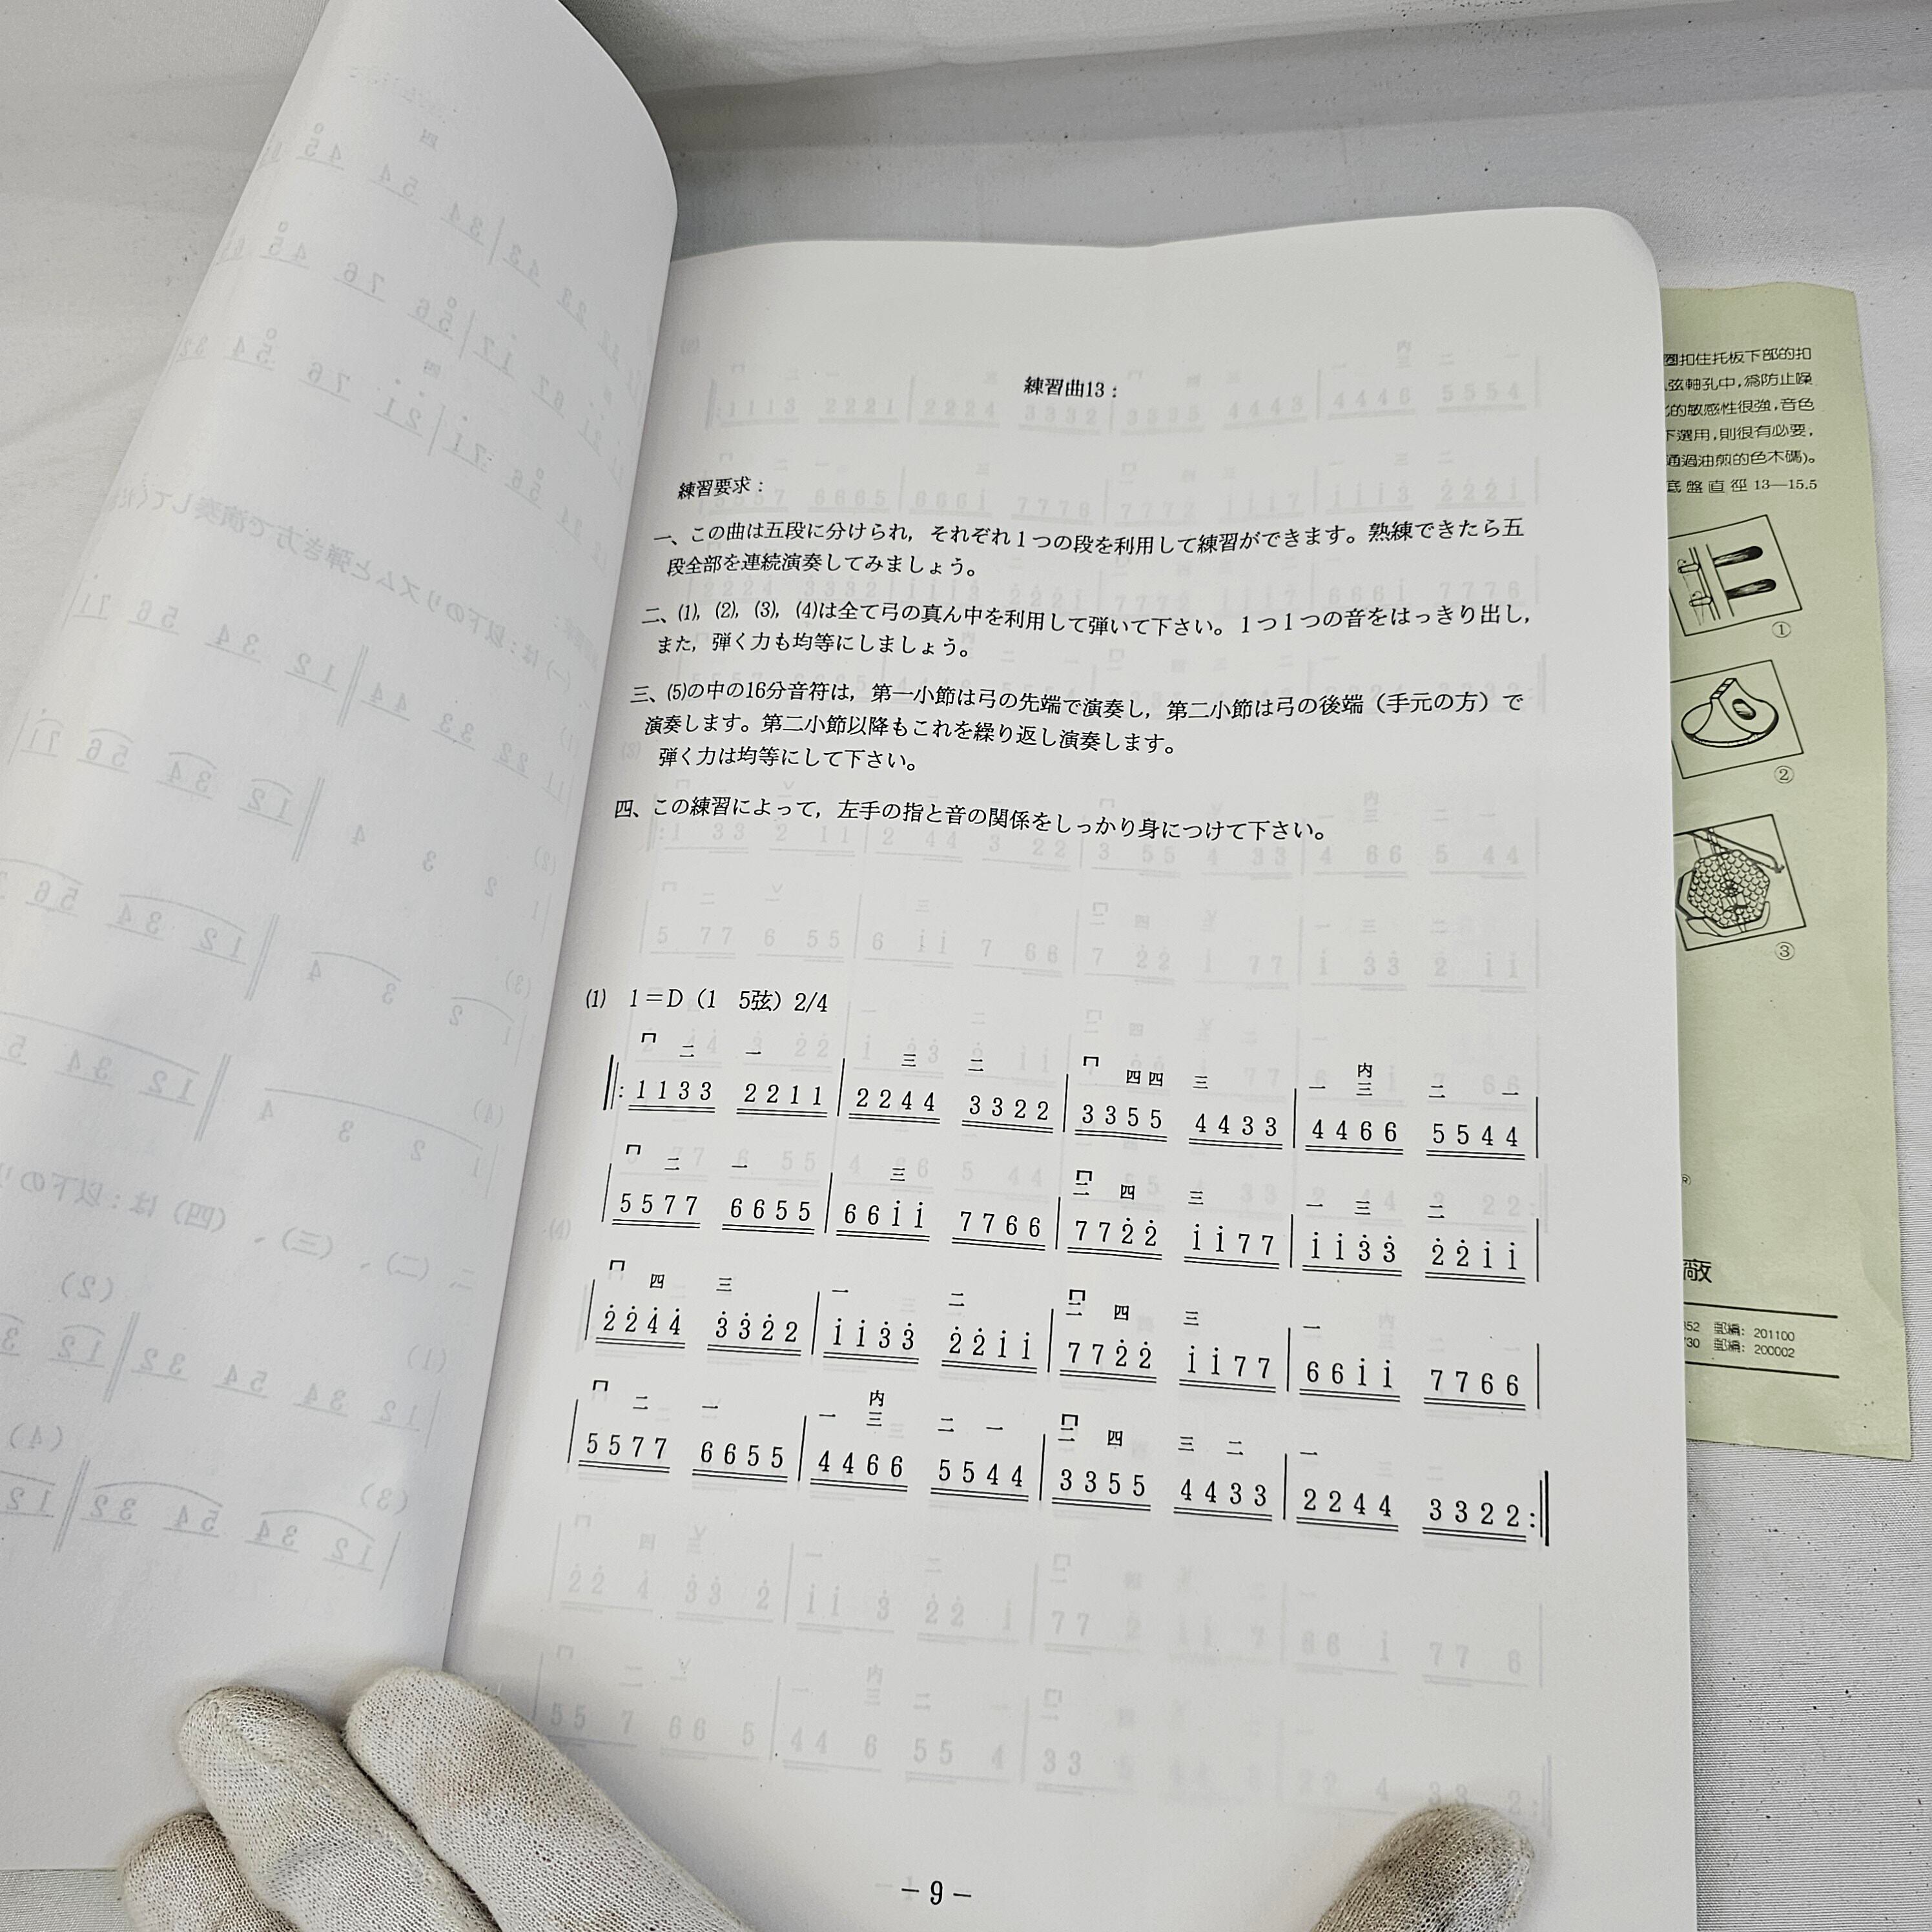 練習曲13：
練習要求：
一、この曲は五段に分けられ，それぞれ１つの段を利用して練習ができます。熟練できたら五
段全部を連続演奏してみましょう。
二、⑴，⑵，⑶，⑷は全て弓の真ん中を利用して弾いて下さい。１つ１つの音をはっきり出し，
また，弾く力も均等にしましょう。
三、⑸の中の16分音符は，第一小節は弓の先端で演奏し，第二小節は弓の後端（手元の方）で
演奏します。第二小節以降もこれを繰り返し演奏します。
弾く力は均等にして下さい。
四、この練習によって，左手の指と音の関係をしっかり身につけて下さい。
⑴ 1＝D（1 5弦）2/4
二 一 三 二 四四 三 一 内三 二 一
‖: 1 1 3 3 2 2 1 1 | 2 2 4 4 3 3 2 2 | 3 3 5 5 4 4 3 3 | 4 4 6 6 5 5 4 4 |
二 一 三 二 四 三 一 三 二
| 5 5 7 7 6 6 5 5 | 6 6 i i 7 7 6 6 | 7 7 2̇ 2̇ i i 7 7 | i i 3̇ 3̇ 2̇ 2̇ i i |
四 三 一 二 二 四 三 一
| 2̇ 2̇ 4̇ 4̇ 3̇ 3̇ 2̇ 2 | i i 3̇ 3̇ 2̇ 2̇ i i | 7 7 2̇ 2̇ i i 7 7 | 6 6 i i 7 7 6 6 |
二 一 一 内三 二 一 二 四 三 二 一
| 5 5 7 7 6 6 5 5 | 4 4 6 6 5 5 4 4 | 3 3 5 5 4 4 3 3 | 2 2 4 4 3 3 2 2 :‖
－9－
圈扣住托板下部的扣
弦軸孔中，爲防止噪
的敏感性很強，音色
下選用，則很有必要，
通過油煎的色木碼）。
底盤直徑 13—15.5
①
②
③
廠
352 郵編：201100
730 郵編：200002